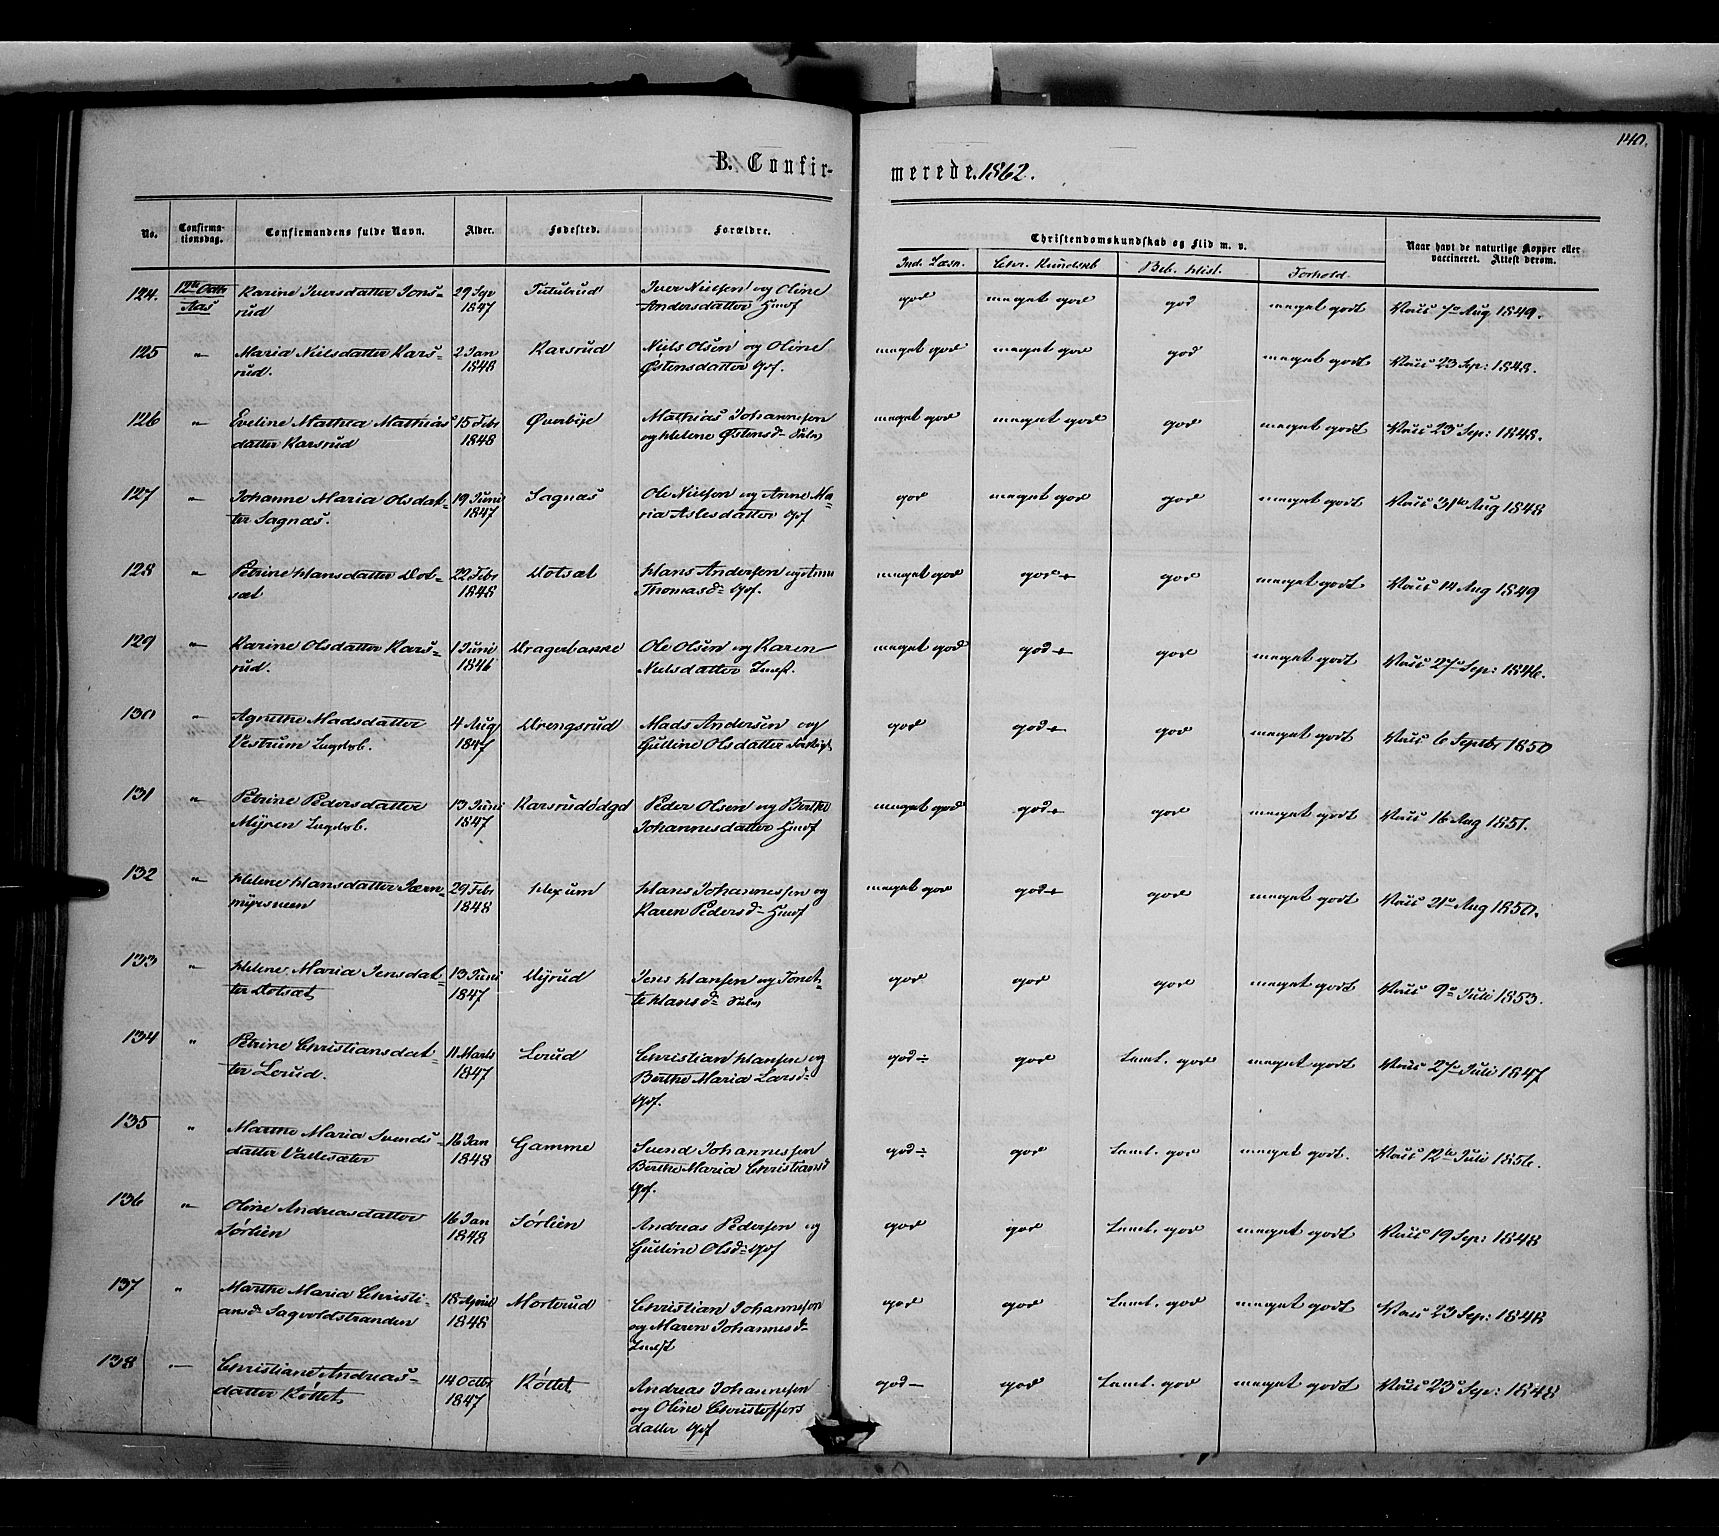 140.
B. Confir-
merede. 1862.
No.
Confirma-
tionsdag.
Confirmandens fulde Navn.
Alder.
Fødested.
Forældre.
Christendomskundskab og Flid m. v.
Naar havt de naturlige Kopper eller
vaccineret. Attest derom.
Ind. Læsn.
Chr. Kundskb
Beb. Hist.
Forhold.
124. 12te Octb Karine Iversdatter Jons= 29 Sep Tutulrud Iver Nielsen og Oline god meget god god meget godt Vacc 7de Aug 1849.
Aas rud 1847 Andersdatter Husf
125 " Maria Nielsdatter Kars= 2 Jan Karsrud Niels Olsen og Oline meget god meget god god meget godt Vacc 23 Sep: 1848.
rud. 1848 Østensdatter Gf.
126 " Eveline Mathea Mathias 15 Febr Øverbye Mathias Johannessen meget god meget god god meget godt Vacc 23 Sep: 1848.
datter Karsrud 1848 og Helene Østensd
127 " Johanne Maria Olsdat= 19 Juni Sagnæs Ole Nielsen og Anne Ma= god meget god god meget godt Vacc 31te Aug 1848
ter Sagnæs. 1847 ria Aslesdatter Gf
128 " Petrine Hansdatter Dot= 22 Febr Dotsæt Hans Andersen og Anne meget god god+ god meget godt Vacc 14 Aug 1849
sæt 1848 Thomasd Gf.
129 " Karine Olsdatter Kars= 1 Juni Dragerbakke Ole Olsen og Karen meget god god+ god meget godt Vacc 27 Sep: 1846.
rud. 1846 Nielsdatter Inst.
130 " Agnethe Madsdatter 4 Aug Drengsrud Mads Andersen og god god+ god meget godt Vacc 6 Septbr 1850
Vestrum Lugdeb. 1847 Gulline Olsdatter
131 " Petrine Pedersdatter 13 Juni Karsrudødgd Peder Olsen og Berthe meget god god+ god meget godt Vacc 16 Aug 1851.
Myren Lugdeb. 1847 Johannesdatter Husf
132 " Helene Hansdatter Jærn 29 Febr Hexum Hans Johannessen og meget god god+ god meget godt Vacc 21 Aug 1850.
1848 Karen Pedersd Husf
133 " Helene Maria Jensdat= 13 Juni Myrud Jens Hansen og Tonet= god god god meget godt Vacc 9 Juli 1853.
ter Dotsæt 1847 te Hansd
134 " Petrine Christiansdat= 11 Marts Lerud Christian Hansen og god÷ god Temt. god meget godt Vacc 27 Juli 1847
ter Lerud. 1847 Berthe Maria Larsd
Gf.
135 " Marthe Maria Svends= 16 Jan Gamme Svend Johannessen god÷ god Temt. god meget godt. Vacc 12te Juli 1856.
datter Vallesæter 1848 Berthe Maria Christiansd
Gf.
136 " Oline Andreasdatter 16 Jan Sørlien Andreas Pedersen og god god Temt. god meget godt Vacc 19 Sep: 1848
Sørlien 1848 Gulline Olsd Gf
137 " Marthe Maria Christi= 18 April Morterud Christian Johannessen god god Temt. god meget godt Vacc 23 Sep: 1848
ansd. Sagvoldstranden 1848 og Maren Johannesd
Inst
138 " Christiane Andreas= 14 Octbr Kottet Andreas Johannessen god- god Temt. god meget godt Vacc 23 Sep: 1848
datter Kottet 1847 og Oline Christoffers
datter Gf